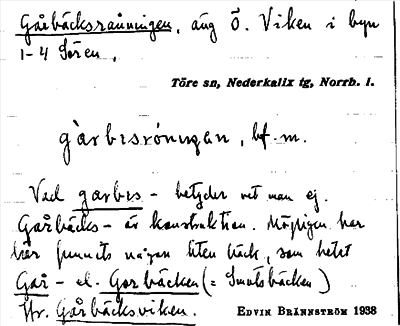 Gårbäcksrauningen, äng Ö. Viken i byn
1-4 Sören.
Töre sn, Nederkalix tg, Norrb. l.
gårbısröningan, bf. m.
Vad garbıs - betyder vet man ej.
Gårbäcks- är konstruktion. Möjligen har
här funnits någon liten bäck, som hetat
Gar- el. Gorbäcken (= Smutsbäcken)
Jfr. Gårbäcksviken.
EDVIN BRÄNNSTRÖM 1938